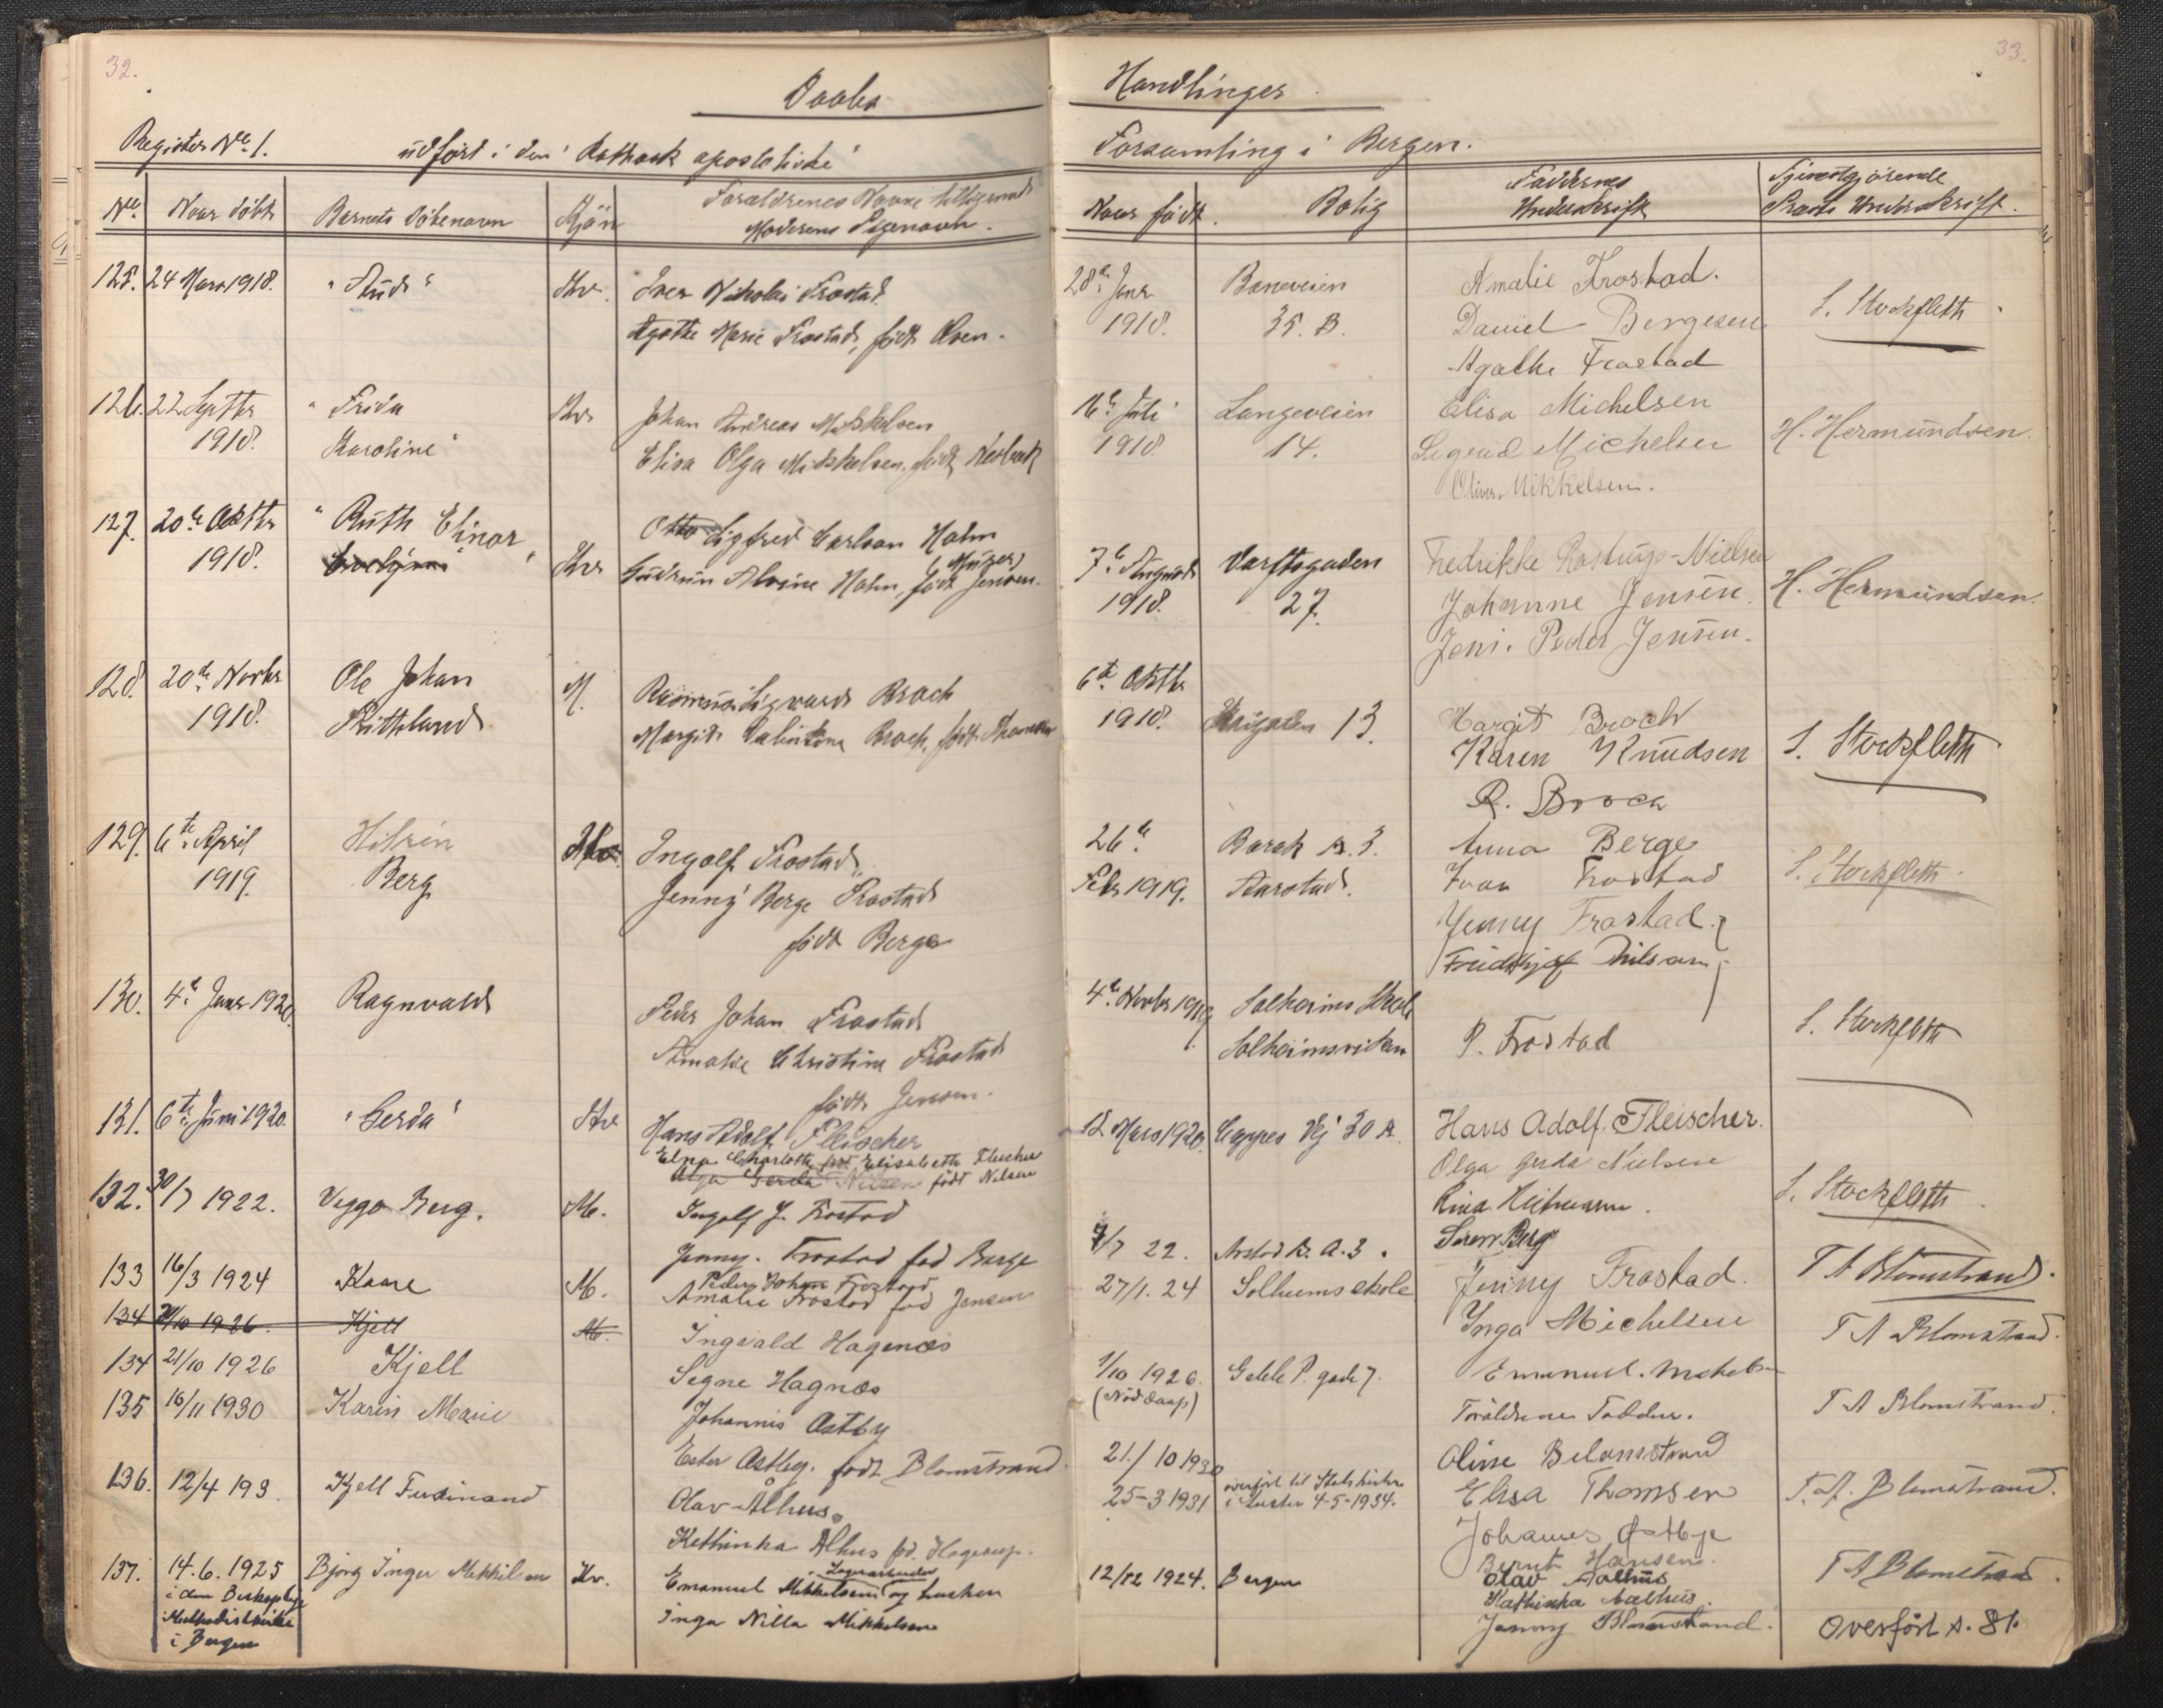 32.
33.
Daabs
Handlinger
Register No 1.
udført i den "katholsk apostoliske"
Forsamling i Bergen.
No
Naar døbt
Barnets Døbenavn
Kjøn
Forældrenes Navne tilligemed
Moderens Pigenavn.
Naar født.
Bolig
Faddernes
Underskrift
Tjenestgjørende
Præsts Underskrift.
125. 24 Mars 1918. "Aud" Kv. Iver Nikolai Frostad.
Agathe Marie Frostad, født Olsen.
28de Janr
1918.
Baneveien
35. B.
Amalie Frostad.
Daniel Bergesen
Agathe Frostad
S. Stockfleth
126. 22 Septbr
1918.
"Frida
Karoline"
Kv.
Johan Andreas Mikkelsen
Elisa Olga Mikkelsen, født
16de Juli
1918
Langeveien
14.
Elisa Michelsen
Michelsen
Oliver Mikkelsen.
H. Hermundsen.
127. 20de Oktbr
1918.
"Ruth Elinor
Kv.
Otto Sigfred Carlson Holm
Gudrun Alvine Holm, født Jensen.
7de August
1918.
Verftsgaden
27.
Fredrikke Rostrup-Nielsen
Johanne Jensen.
Jens. Peder Jensen.
H. Hermundsen.
128. 20de Novbr
1918.
Ole Johan
M.
Rasmus Sigvard Broch
Margit Broch, født
6te Oktbr
1918.
13.
Margit Broch
Karen Knudsen
R. Broch
S. Stockfleth
129. 6te April
1919.
Berg
Kv.
Ingolf Frostad,
Jenny Berge Frostad
født Berge
26de
Febr 1919.
Barak A. 3.
Aarstad.
Anna Berge
Ivar Frostad
Jenny Frostad.
S. Stockfleth.
130. 4de Janr 1920.
Ragnvald
Peder Johan Frostad
Amalie Christine Frostad
født Jensen.
4de Novbr 1919
Solheims Skole
Solheimsviken
P. Frostad
S. Stockfleth
131. 6te Juni 1920.
"Gerda"
Kv
Hans Adolf Fleischer
Elna Charlotte Elisabeth Fleischer
Olga Gerda Nilsen født Nilsen
12 Mars 1920.
Vej 30 A.
Hans Adolf. Fleischer.
Olga Gerda Nielsen
S. Stockfleth
132. 30/7 1922.
Viggo Berg.
M.
Ingolf J. Frostad
Jenny. Frostad fød Berge
4/7 22.
Arstad B. A. 3.
Søren Berg
Jenny Frostad.
T A Blomstrand.
133 16/3 1924
Kaare
M.
Peder Johan Frostad
Amalie Frostad fød Jensen
27/1. 24
Solheims skole
Inga Michelsen
T A Blomstrand.
134 21/10 1926.
Kjell
M.
134 21/10 1926
Kjell
Ingvald Hagenæs
Segne Hagnæs
1/10 1926.
(Nöddaap)
P. gade 7.
Emanuel.
Foräldrene Faddere.
T A Blomstrand.
135 16/11 1930
Karin Marie
Johannes Østby
Ester Østby. født Blomstrand
21/10 1930
Oline Blomstrand
Elisa Thomsen
Johannes Østbye
T. A. Blomstrand.
136. 12/4 193
Kjell Ferdinand
Olav Ålhus.
Kethinka Ålhus fød. Hagerup.
25-3 1931
overført til Statskirken
i Luster 4-5-1934.
Bernt Hansen.
Olav Aalhus
Kathinka Aalhus.
T A Blomstrand.
137. 14.6.1925
i den Biskoplige
Methodistkirke
i Bergen
Bjørg Inger Mikkelsen
Kv.
Lagerarbeider
Emanuel Mikkelsen og hustru
Inga Nilla Mikkelsen
12/12 1924.
Bergen
Jenny Blomstrand.
Overført s. 81.